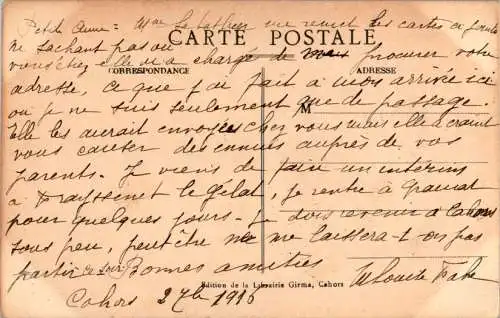 Petite Amie = Mme Le me remet les cartes ci jointes
ne sachant pas où
CARTE POSTALE
vous êtes elle m'a chargé de procurer votre
CORRESPONDANCE
ADRESSE
adresse, ce que j'ai fait à mon arrivée ici
où je ne suis seulement que de passage.
M
Elle les aurait envoyées chez vous mais elle a craint
vous causer des ennuis auprès de vos
parents. Je viens de faire un intérim
à Frayssinet le Gélat, je rentre à Gramat
pour quelques jours. Je dois revenir à Cahors
sous peu, peut être ne me laissera-t-on pas
partir ce soir Bonnes amitiés
Edition de la Librairie Girma, Cahors
Cahors 2 7bre 1916